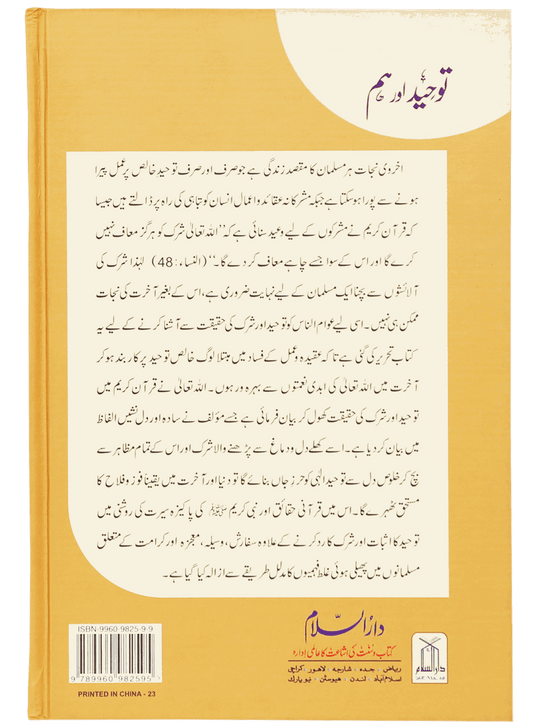 توحید اور ہم
اخروی نجات ہر مسلمان کا مقصد زندگی ہے جو صرف اور صرف توحید خالص پر عمل پیرا
ہونے سے پورا ہوسکتا ہے جبکہ مشرکانہ عقائد و اعمال انسان کو تباہی کی راہ پر ڈالتے ہیں جیسا
کہ قرآن کریم نے مشرکوں کے لیے وعید سنائی ہے کہ ”اللہ تعالیٰ شرک کو ہرگز معاف نہیں
کرے گا اور اس کے سوا جسے چاہے معاف کر دے گا۔“ (النساء:48) لہٰذا شرک کی
آلائشوں سے بچنا ایک مسلمان کے لیے نہایت ضروری ہے، اس کے بغیر آخرت کی نجات
ممکن ہی نہیں۔ اسی لیے عوام الناس کو توحید اور شرک کی حقیقت سے آشنا کرنے کے لیے یہ
کتاب تحریر کی گئی ہے تاکہ عقیدہ و عمل کے فساد میں مبتلا لوگ خالص توحید پر کاربند ہو کر
آخرت میں اللہ تعالیٰ کی ابدی نعمتوں سے بہرہ ور ہوں۔ اللہ تعالیٰ نے قرآن کریم میں
توحید اور شرک کی حقیقت کھول کر بیان فرمائی ہے جسے مؤلف نے سادہ اور دل نشیں الفاظ
میں بیان کر دیا ہے۔ اسے کھلے دل و دماغ سے پڑھنے والا شرک اور اس کے تمام مظاہر سے
بچ کر خلوص دل سے توحید الٰہی کو حرز جاں بنائے گا تو دنیا اور آخرت میں یقیناً فوز و فلاح کا
مستحق ٹھہرے گا۔ اس میں قرآنی حقائق اور نبی کریم ﷺ کی پاکیزہ سیرت کی روشنی میں
توحید کا اثبات اور شرک کا رد کرنے کے علاوہ سفارش، وسیلہ، معجزہ اور کرامت کے متعلق
مسلمانوں میں پھیلی ہوئی غلط فہمیوں کا مدلل طریقے سے ازالہ کیا گیا ہے۔
ISBN-9960 9825-9-9
9 789960 982595
PRINTED IN CHINA - 23
دارُالسّلام
کتاب و سنت کی اشاعت کا عالمی ادارہ
ریاض، جدہ، شارجہ، لاہور، کراچی
اسلام آباد، لندن، ہیوسٹن، نیویارک
دارالسلام